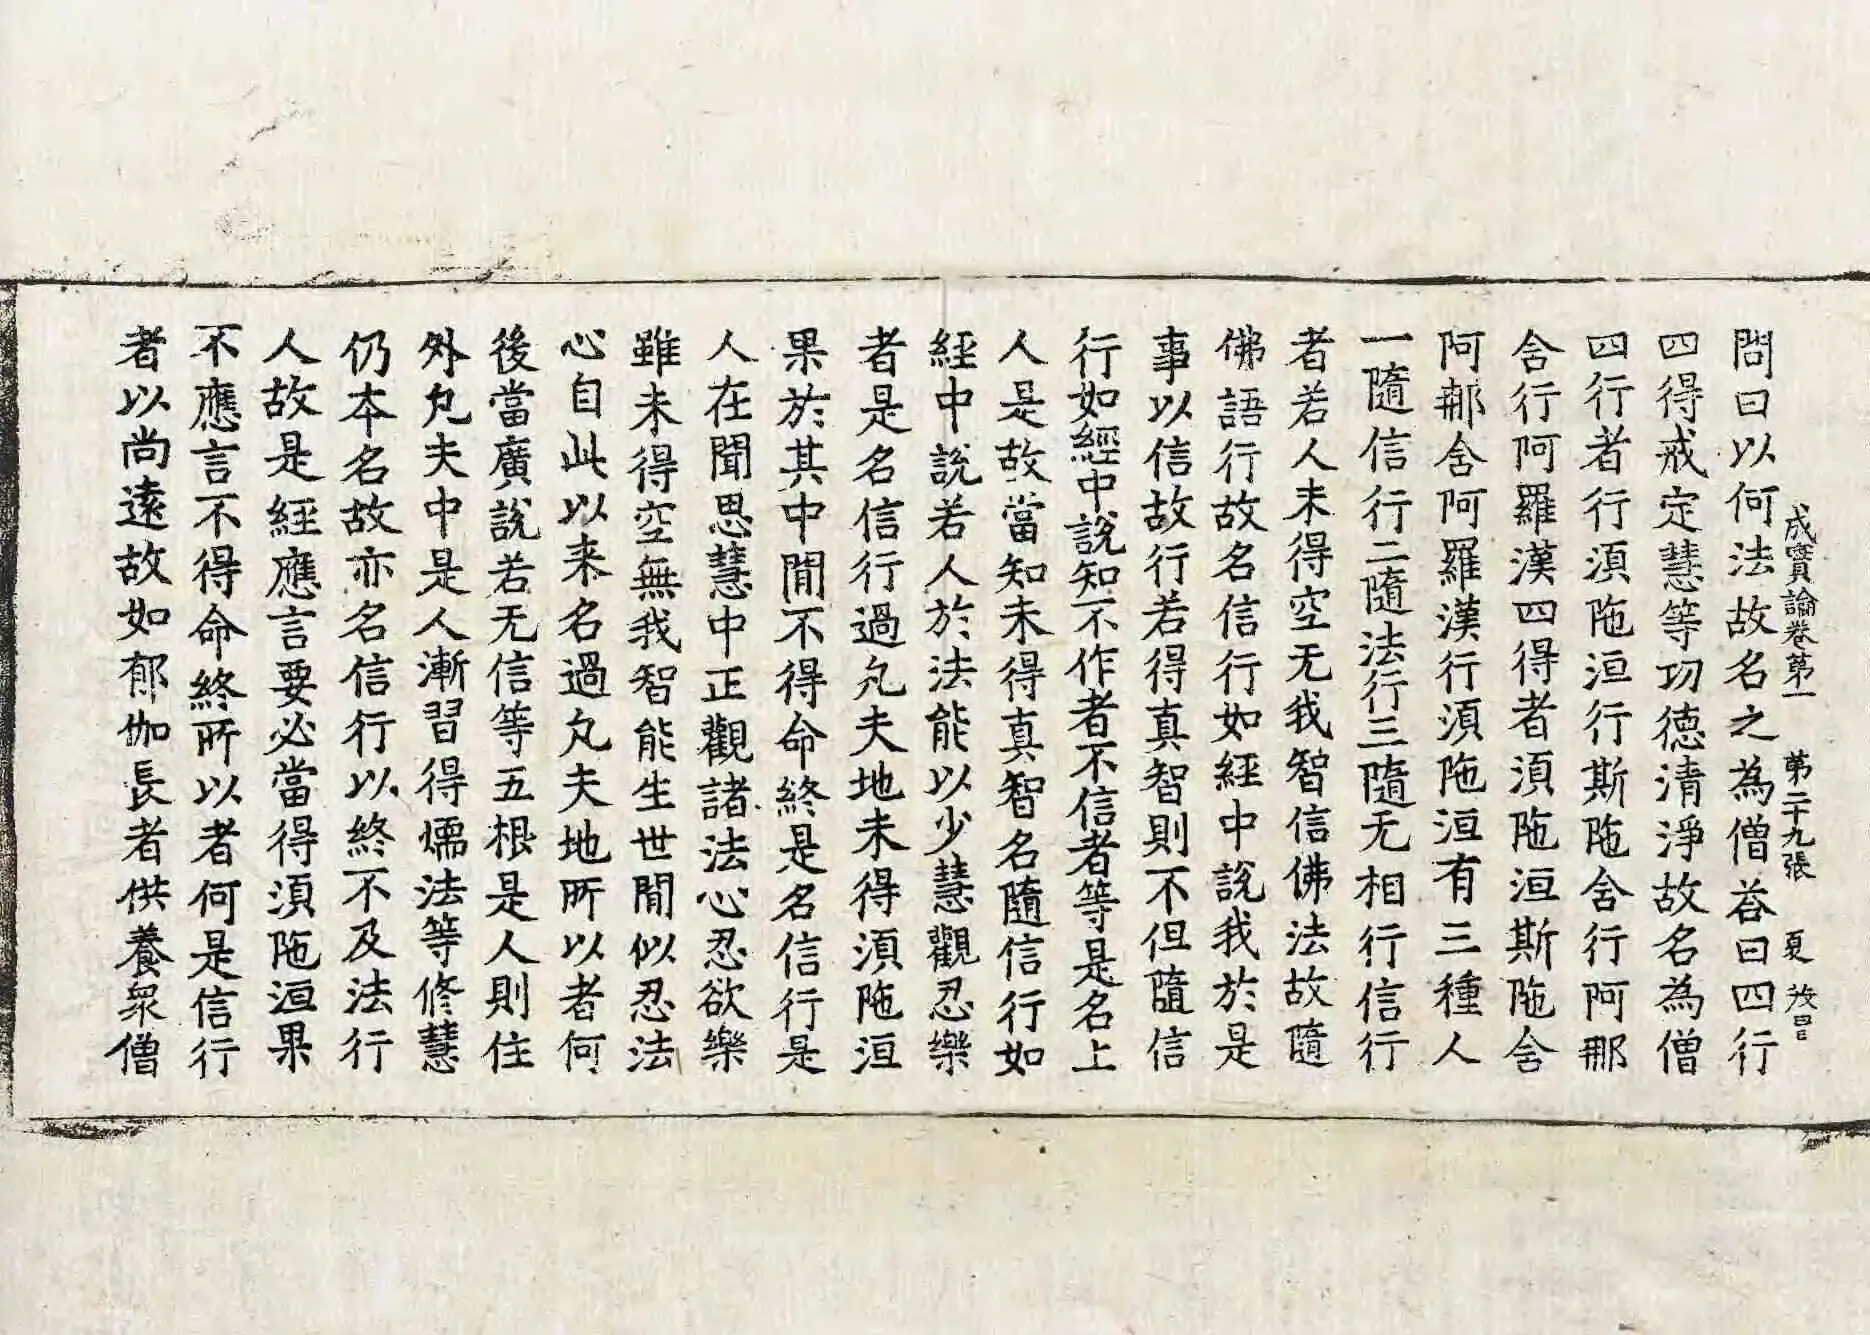 成實論卷第一　第二十九張　夏
問曰以何法故名之為僧荅曰四行
四得戒定慧等功德清淨故名為僧
四行者行湏陁洹行斯陁含行阿那
含行阿羅漢四得者湏陁洹斯陁含
阿那含阿羅漢行湏陁洹有三種人
一隨信行二隨法行三隨无相行信行
者若人未得空无我智信佛法故隨
佛語行故名信行如經中說我於是
事以信故行若得真智則不但隨信
行如經中說知不作者不信者等是名上
人是故當知未得真智名隨信行如
經中說若人於法能以少慧觀忍樂
者是名信行過凡夫地未得湏陁洹
果於其中閒不得命終是名信行是
人在聞思慧中正觀諸法心忍欲樂
雖未得空無我智能生世閒似忍法
心自此以来名過凡夫地所以者何
後當廣說若无信等五根是人則住
外凡夫中是人漸習得煗法等修慧
仍本名故亦名信行以終不及法行
人故是經應言要必當得湏陁洹果
不應言不得命終所以者何是信行
者以尚遠故如郁伽長者供養眾僧